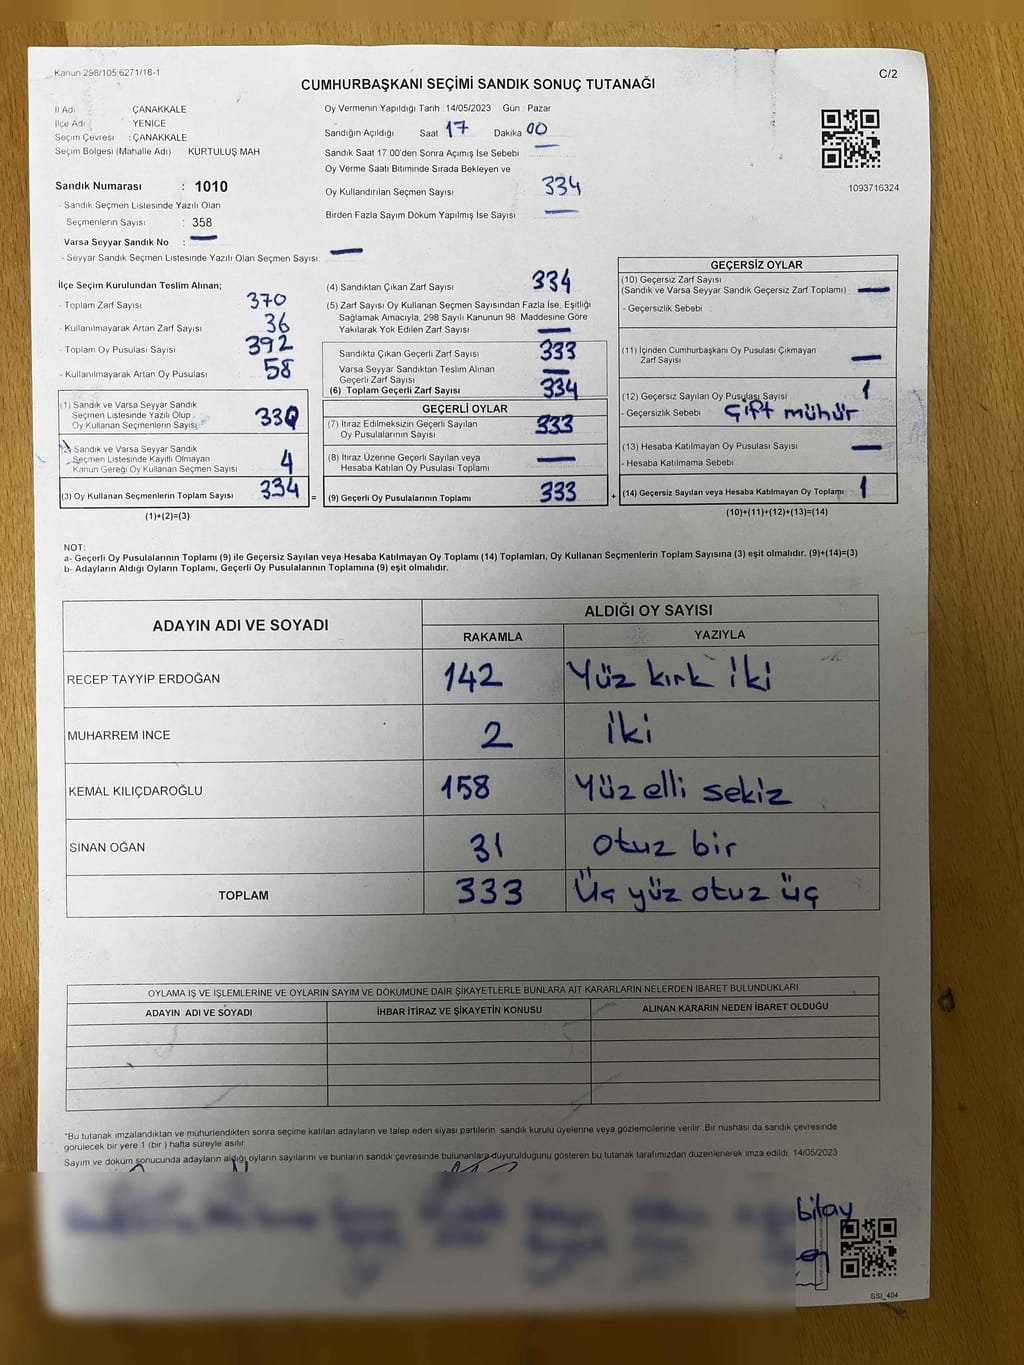 Kanun 298/105 6271/18-1
C/2
CUMHURBAŞKANI SEÇİMİ SANDIK SONUÇ TUTANAĞI
İl Adı ÇANAKKALE
İlçe Adı YENİCE
Seçim Çevresi : ÇANAKKALE
Seçim Bölgesi (Mahalle Adı) KURTULUŞ MAH
Sandık Numarası : 1010
- Sandık Seçmen Listesinde Yazılı Olan
Seçmenlerin Sayısı : 358
Varsa Seyyar Sandık No : —
- Seyyar Sandık Seçmen Listesinde Yazılı Olan Seçmen Sayısı: —
Oy Vermenin Yapıldığı Tarih : 14/05/2023 Gün : Pazar
Sandığın Açıldığı Saat 17 Dakika 00
Sandık Saat 17.00'den Sonra Açımış İse Sebebi —
Oy Verme Saati Bitiminde Sırada Bekleyen ve
Oy Kullandırılan Seçmen Sayısı 334
Birden Fazla Sayım Döküm Yapılmış İse Sayısı —
1093716324
İlçe Seçim Kurulundan Teslim Alınan;
- Toplam Zarf Sayısı 370
- Kullanılmayarak Artan Zarf Sayısı 36
- Toplam Oy Pusulası Sayısı 392
- Kullanılmayarak Artan Oy Pusulası 58
(1) Sandık ve Varsa Seyyar Sandık
Seçmen Listesinde Yazılı Olup
Oy Kullanan Seçmenlerin Sayısı 330
(2) Sandık ve Varsa Seyyar Sandık
Seçmen Listesinde Kayıtlı Olmayan
Kanun Gereği Oy Kullanan Seçmen Sayısı 4
(3) Oy Kullanan Seçmenlerin Toplam Sayısı 334 =
(1)+(2)=(3)
(4) Sandıktan Çıkan Zarf Sayısı 334
(5) Zarf Sayısı Oy Kullanan Seçmen Sayısından Fazla İse, Eşitliği
Sağlamak Amacıyla, 298 Sayılı Kanunun 98. Maddesine Göre
Yakılarak Yok Edilen Zarf Sayısı —
Sandıkta Çıkan Geçerli Zarf Sayısı 333
Varsa Seyyar Sandıktan Teslim Alınan
Geçerli Zarf Sayısı —
(6) Toplam Geçerli Zarf Sayısı 334
GEÇERLİ OYLAR
(7) İtiraz Edilmeksizin Geçerli Sayılan
Oy Pusulalarının Sayısı 333
(8) İtiraz Üzerine Geçerli Sayılan veya
Hesaba Katılan Oy Pusulası Toplamı —
(9) Geçerli Oy Pusulalarının Toplamı 333 +
GEÇERSİZ OYLAR
(10) Geçersiz Zarf Sayısı
(Sandık ve Varsa Seyyar Sandık Geçersiz Zarf Toplamı) : —
- Geçersizlik Sebebi
(11) İçinden Cumhurbaşkanı Oy Pusulası Çıkmayan
Zarf Sayısı —
(12) Geçersiz Sayılan Oy Pusulası Sayısı 1
- Geçersizlik Sebebi Çift mühür
(13) Hesaba Katılmayan Oy Pusulası Sayısı —
- Hesaba Katılmama Sebebi
(14) Geçersiz Sayılan veya Hesaba Katılmayan Oy Toplamı 1
(10)+(11)+(12)+(13)=(14)
NOT:
a- Geçerli Oy Pusulalarının Toplamı (9) ile Geçersiz Sayılan veya Hesaba Katılmayan Oy Toplamı (14) Toplamları, Oy Kullanan Seçmenlerin Toplam Sayısına (3) eşit olmalıdır. (9)+(14)=(3)
b- Adayların Aldığı Oyların Toplamı, Geçerli Oy Pusulalarının Toplamına (9) eşit olmalıdır.
ADAYIN ADI VE SOYADI
ALDIĞI OY SAYISI
RAKAMLA YAZIYLA
RECEP TAYYİP ERDOĞAN 142 Yüz kırk iki
MUHARREM İNCE 2 İki
KEMAL KILIÇDAROĞLU 158 Yüz elli sekiz
SİNAN OĞAN 31 otuz bir
TOPLAM 333 Üç yüz otuz üç
OYLAMA İŞ VE İŞLEMLERİNE VE OYLARIN SAYIM VE DÖKÜMÜNE DAİR ŞİKAYETLERLE BUNLARA AİT KARARLARIN NELERDEN İBARET BULUNDUKLARI
ADAYIN ADI VE SOYADI İHBAR İTİRAZ VE ŞİKAYETİN KONUSU ALINAN KARARIN NEDEN İBARET OLDUĞU
*Bu tutanak imzalandıktan ve mühürlendikten sonra seçime katılan adayların ve talep eden siyasi partilerin sandık kurulu üyelerine veya gözlemcilerine verilir. Bir nüshası da sandık çevresinde
görülecek bir yere 1 (bir) hafta süreyle asılır.
Sayım ve döküm sonucunda adayların aldığı oyların sayılarını ve bunların sandık çevresinde bulunanlara duyurulduğunu gösteren bu tutanak tarafımızdan düzenlenerek imza edildi. 14/05/2023
bitay
SSI_404